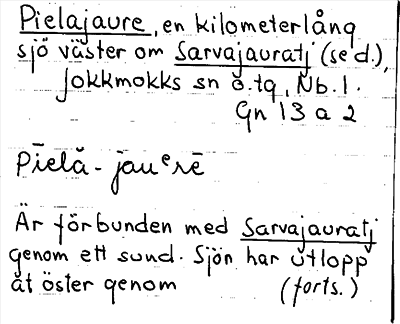 Pielajaure, en kilometerlång
sjö väster om Sarvajauratj (se d.),
Jokkmokks sn o. tg, Nb. l.
Gn 13 a 2
pīelă - jauᵉrē
Är förbunden med Sarvajauratj
genom ett sund. Sjön har utlopp
åt öster genom (forts.)